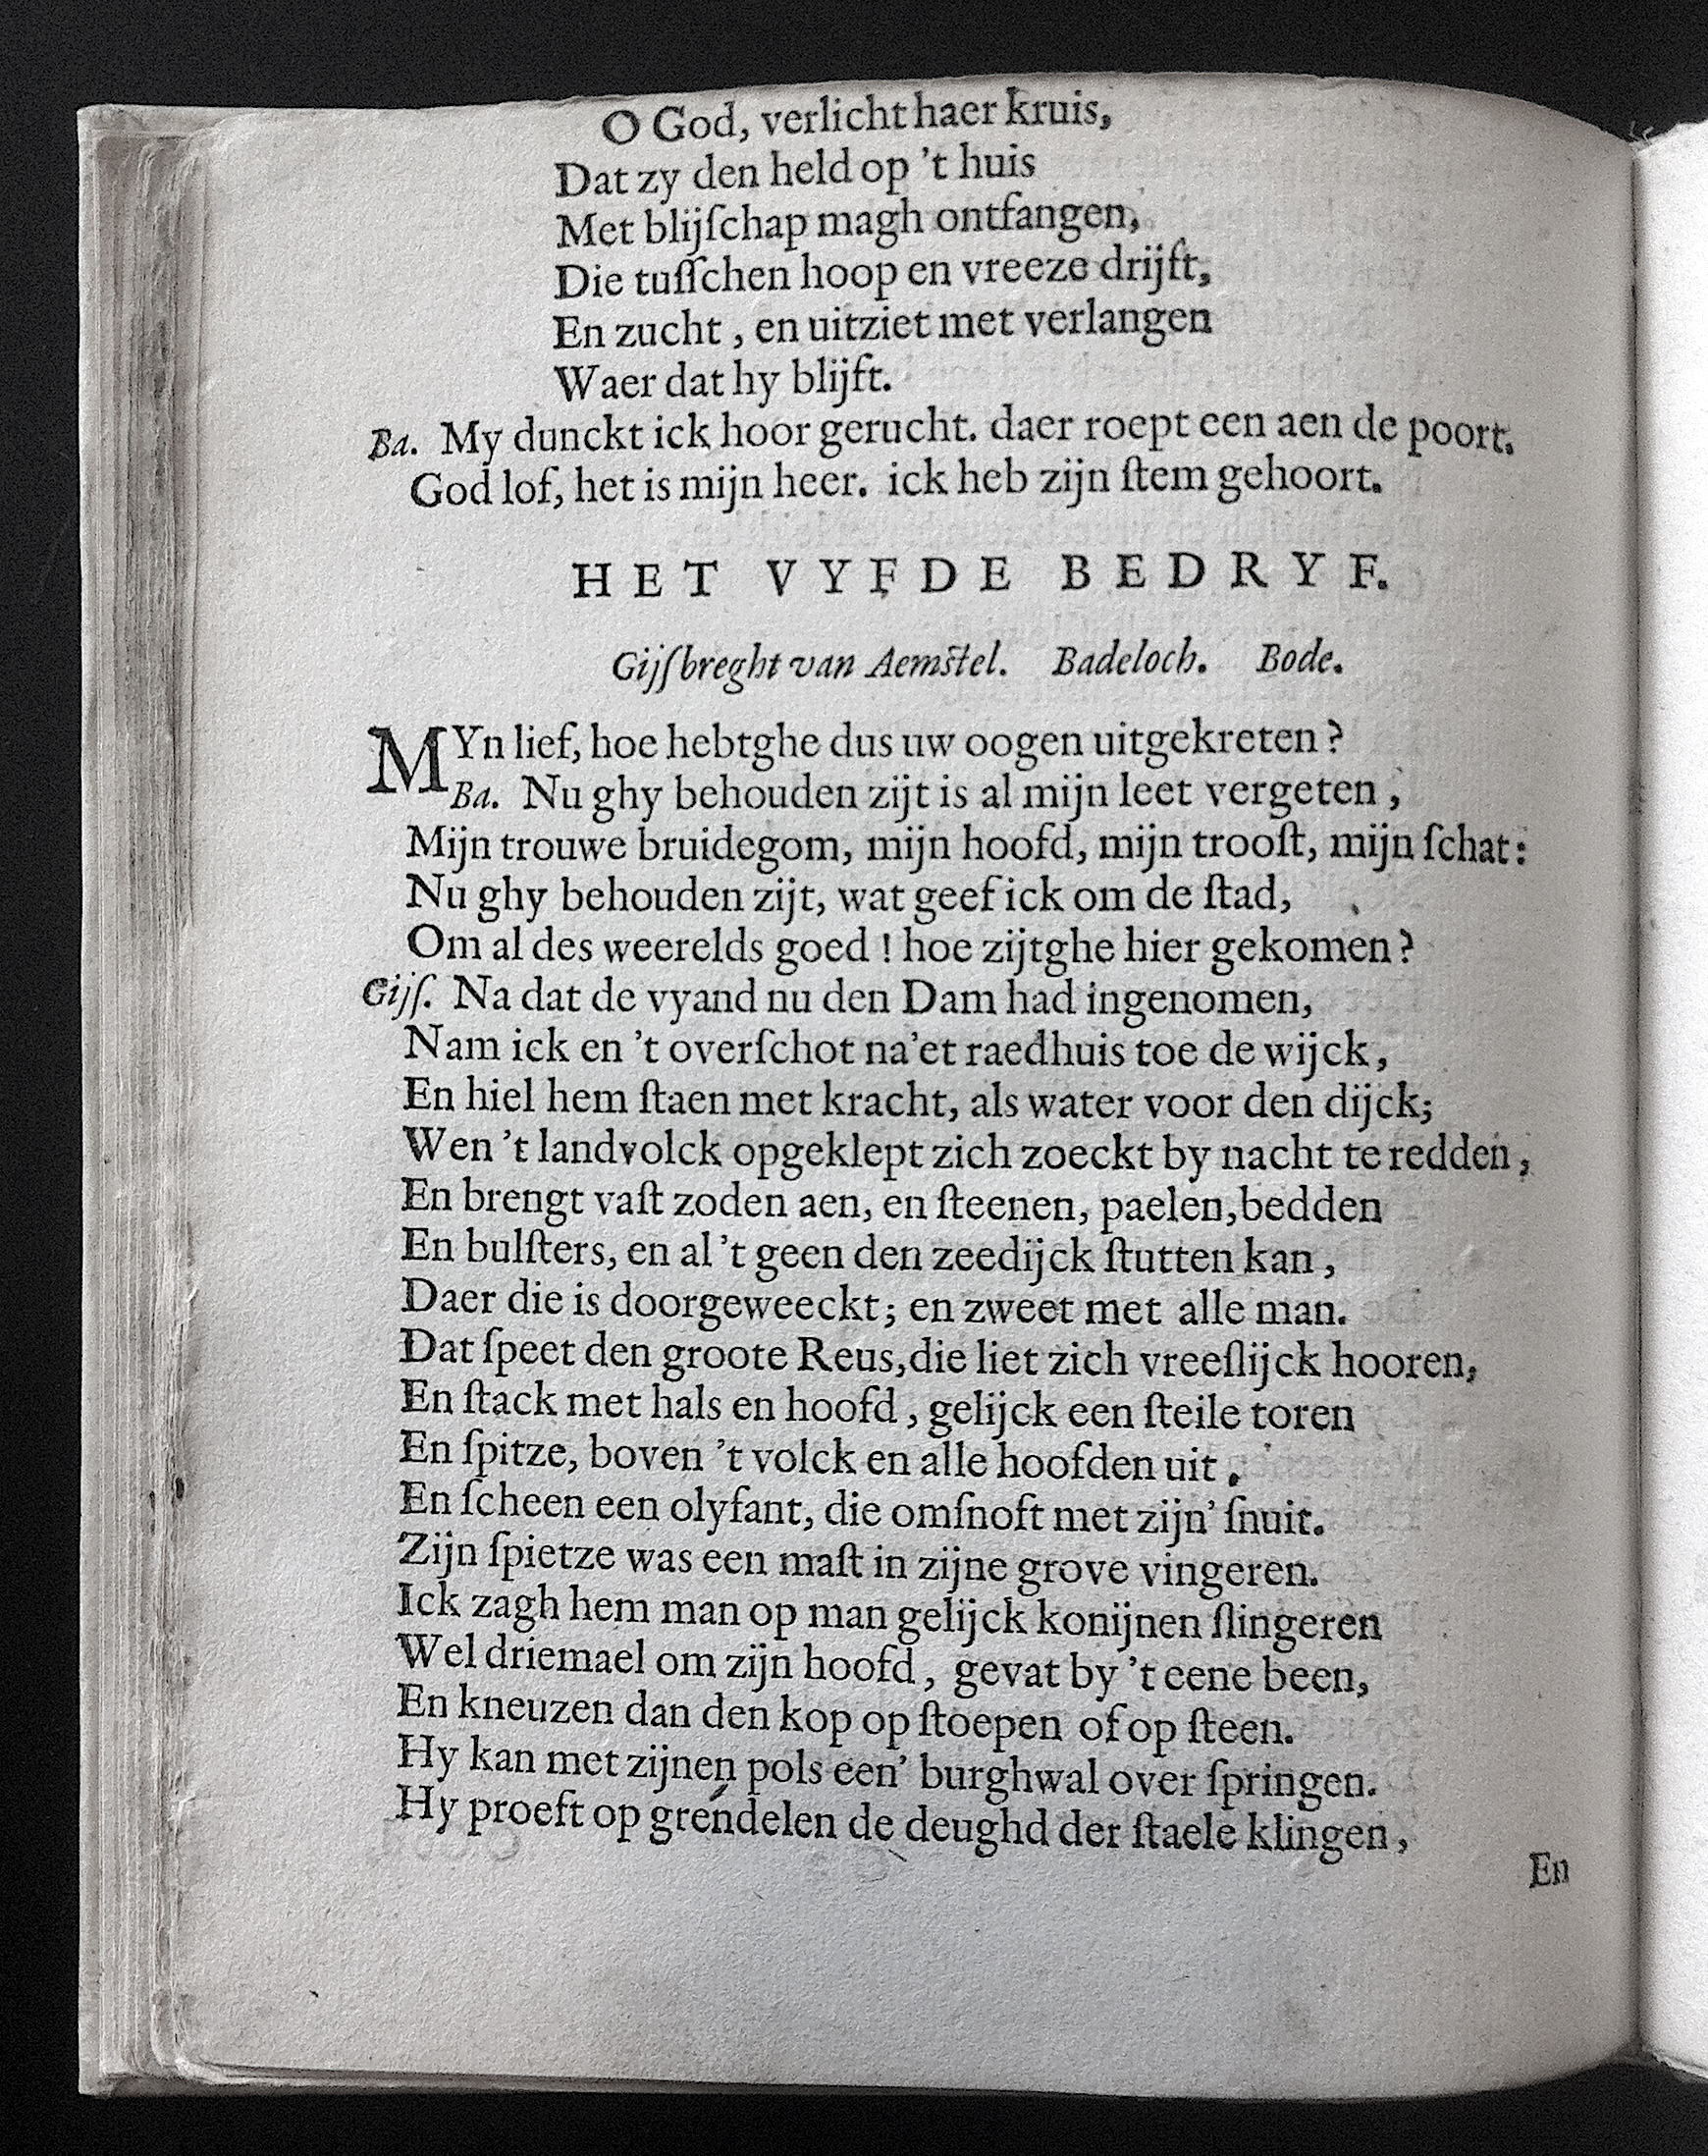 O God, verlicht haer kruis,
Dat zy den held op 't huis
Met blijſchap magh ontfangen,
Die tuſſchen hoop en vreeze drijft,
En zucht, en uitziet met verlangen
Waer dat hy blijft.
Ba. My dunckt ick hoor gerucht. daer roept een aen de poort.
God lof, het is mijn heer. ick heb zijn ſtem gehoort.
HET VYFDE BEDRYF.
Gijſbreght van Aemſtel. Badeloch. Bode.
MYn lief, hoe hebtghe dus uw oogen uitgekreten?
Ba. Nu ghy behouden zijt is al mijn leet vergeten,
Mijn trouwe bruidegom, mijn hoofd, mijn trooſt, mijn ſchat:
Nu ghy behouden zijt, wat geef ick om de ſtad,
Om al des weerelds goed! hoe zijtghe hier gekomen?
Gijſ. Na dat de vyand nu den Dam had ingenomen,
Nam ick en 't overſchot na'et raedhuis toe de wijck,
En hiel hem ſtaen met kracht, als water voor den dijck;
Wen 't landvolck opgeklept zich zoeckt by nacht te redden,
En brengt vaſt zoden aen, en ſteenen, paelen, bedden
En bulſters, en al 't geen den zeedijck ſtutten kan,
Daer die is doorgeweeckt; en zweet met alle man.
Dat ſpeet den groote Reus, die liet zich vreeſlijck hooren,
En ſtack met hals en hoofd, gelijck een ſteile toren
En ſpitze, boven 't volck en alle hoofden uit.
En ſcheen een olyfant, die omſnoft met zijn' ſnuit.
Zijn ſpietze was een maſt in zijne grove vingeren.
Ick zagh hem man op man gelijck konijnen ſlingeren
Wel driemael om zijn hoofd, gevat by 't eene been,
En kneuzen dan den kop op ſtoepen of op ſteen.
Hy kan met zijnen pols een' burghwal over ſpringen.
Hy proeft op gréndelen de deughd der ſtaele klingen,
En